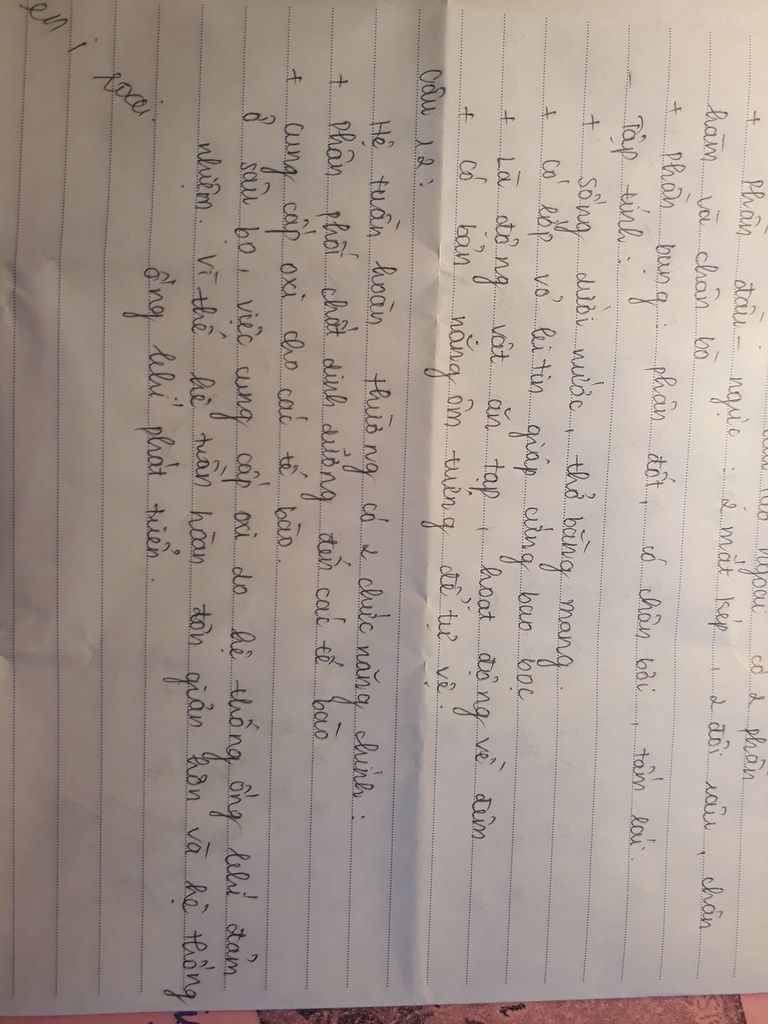 ngoài có 2 phần
+ Phần đầu - ngực : 2 mắt kép, 2 đôi râu, chân
hàm và chân bò
+ Phần bụng : phân đốt, có chân bơi, tấm lái.
- Tập tính :
+ Sống dưới nước, thở bằng mang.
+ có lớp vỏ kitin giáp cứng bao bọc
+ Là động vật ăn tạp, hoạt động về đêm
+ có bản năng ôm trứng để tự vệ.
Câu 12 :
Hệ tuần hoàn thường có 2 chức năng chính :
+ Phân phối chất dinh dưỡng đến các tế bào
+ cung cấp oxi cho các tế bào.
Ở sâu bọ, việc cung cấp oxi do hệ thống ống khí đảm
nhiệm. Vì thế hệ tuần hoàn đơn giản hơn và hệ thống
ống khí phát triển.